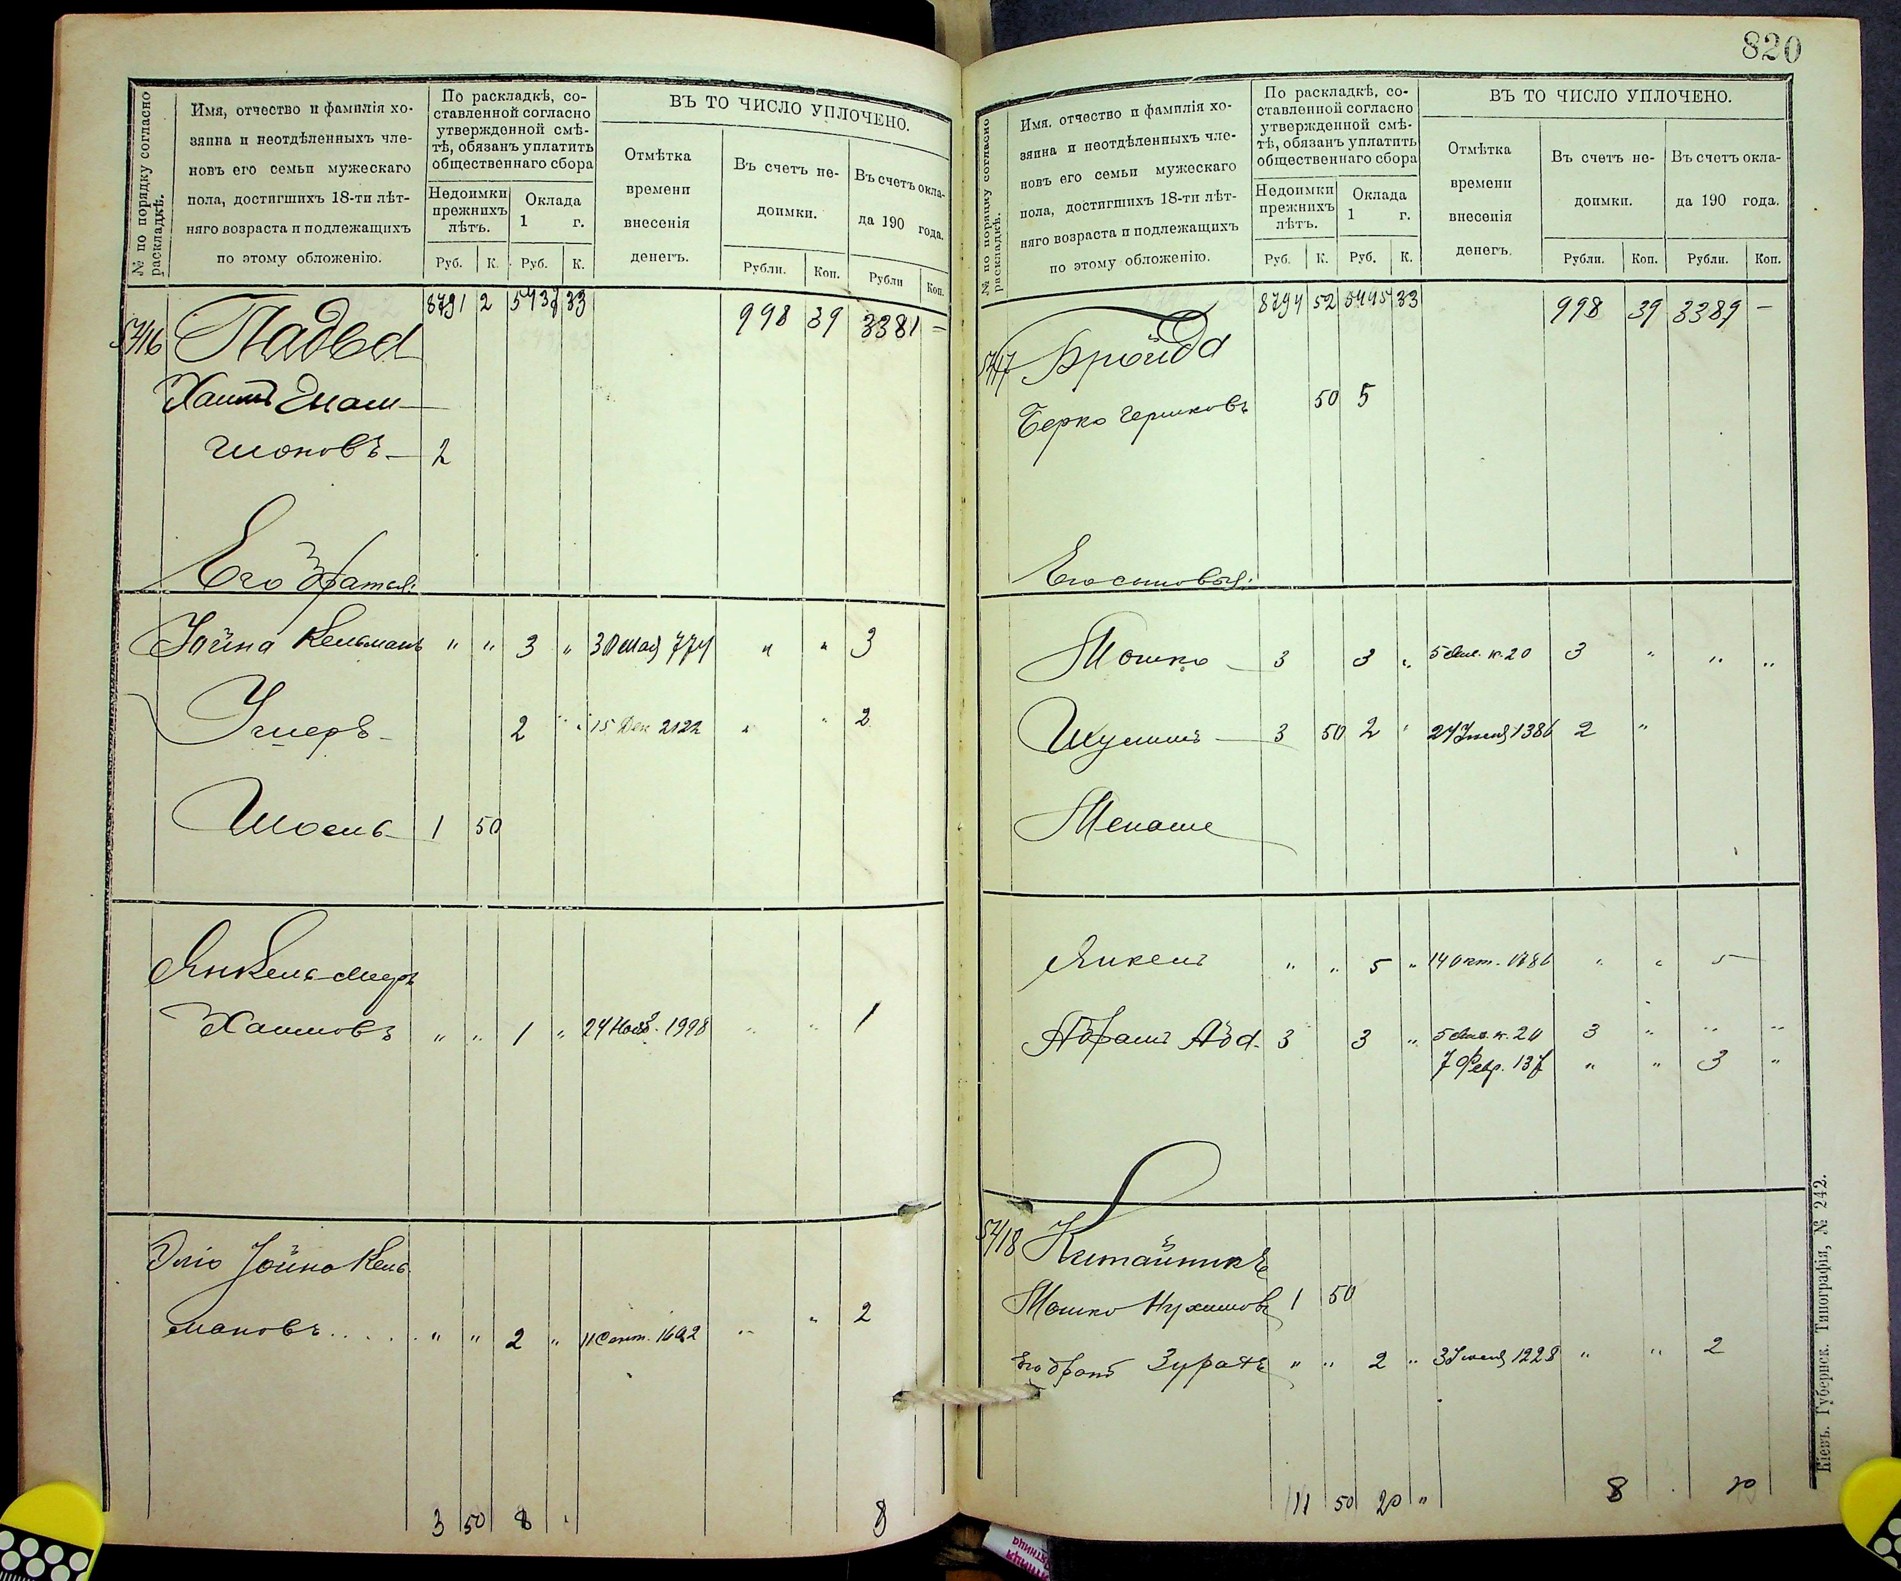 820
№ по порядку согласно раскладкѣ.
Имя, отчество и фамилія хо-
зяина и неотдѣленныхъ чле-
новъ его семьи мужескаго
пола, достигшихъ 18-ти лѣт-
няго возраста и подлежащихъ
по этому обложенію.
По раскладкѣ, со-
ставленной согласно
утвержденной смѣ-
тѣ, обязанъ уплатить
общественнаго сбора
Недоимки прежнихъ лѣтъ.
Оклада 1 г.
Руб. К. Руб. К.
ВЪ ТО ЧИСЛО УПЛОЧЕНО.
Отмѣтка
времени
внесенія
денегъ.
Въ счетъ не-
доимки.
Рубли. Коп.
Въ счетъ окла-
да 190 года.
Рубли Коп.
8791 2 5437 33 998 39 3381 —
5416
Хаимъ
2
Его братья:
Іойна Кельманъ " " 3 " 30 мая 774 " " 3
Умеръ 2 " 15 Дек 2122 " " 2
1 50
Янкель-Мееръ
Хаимовъ " " 1 " 24 Нояб. 1998 " " 1
Эліо Іойно Кель
мановъ..... " " 2 " 11 Сент. 1692 " " 2
3 50 8 8
№ по порядку согласно раскладкѣ.
Имя, отчество и фамилія хо-
зяина и неотдѣленныхъ чле-
новъ его семьи мужескаго
пола, достигшихъ 18-ти лѣт-
няго возраста и подлежащихъ
по этому обложенію.
По раскладкѣ, со-
ставленной согласно
утвержденной смѣ-
тѣ, обязанъ уплатить
общественнаго сбора
Недоимки прежнихъ лѣтъ.
Оклада 1 г.
Руб. К. Руб. К.
ВЪ ТО ЧИСЛО УПЛОЧЕНО.
Отмѣтка
времени
внесенія
денегъ.
Въ счетъ не-
доимки.
Рубли. Коп.
Въ счетъ окла-
да 190 года.
Рубли. Коп.
8794 52 5445 33 998 39 3389 —
5417 Бройда
Берко Гершковъ 50 5
Его сыновья:
Мошко 3 3 " 20 3 " " "
Шулимъ 3 50 2 " 24 1386 2 "
Менаше
Янкель " " 5 " 14 Окт. 1786 " " 5
Абрамъ Аба 3 3 " 20 3 " " "
7 Февр. 137 " " 3 "
5418 Китайникъ
Мошко Нухимовъ 1 50
Его братъ " " 2 " 1228 " " 2
11 50 20 " 8 20
Кіевъ. Губернск. Типографія, № 242.